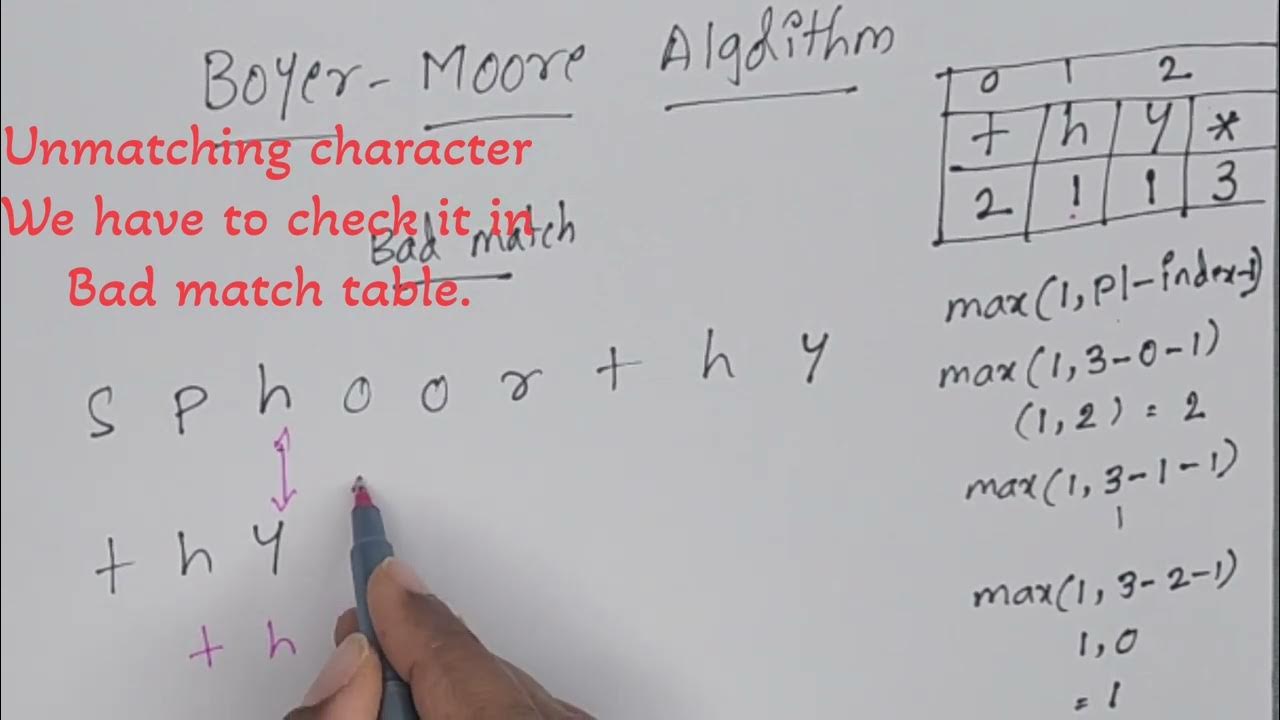 Boyer-Moore Algorithm
Unmatching character
We have to check it in
Bad match table.
Bad match
S P h o o r t h y
t h y
t h
0 1 2
t h y *
2 1 1 3
max(1, pl-index-1)
max(1, 3-0-1)
(1, 2) = 2
max(1, 3-1-1)
1
max(1, 3-2-1)
1, 0
= 1